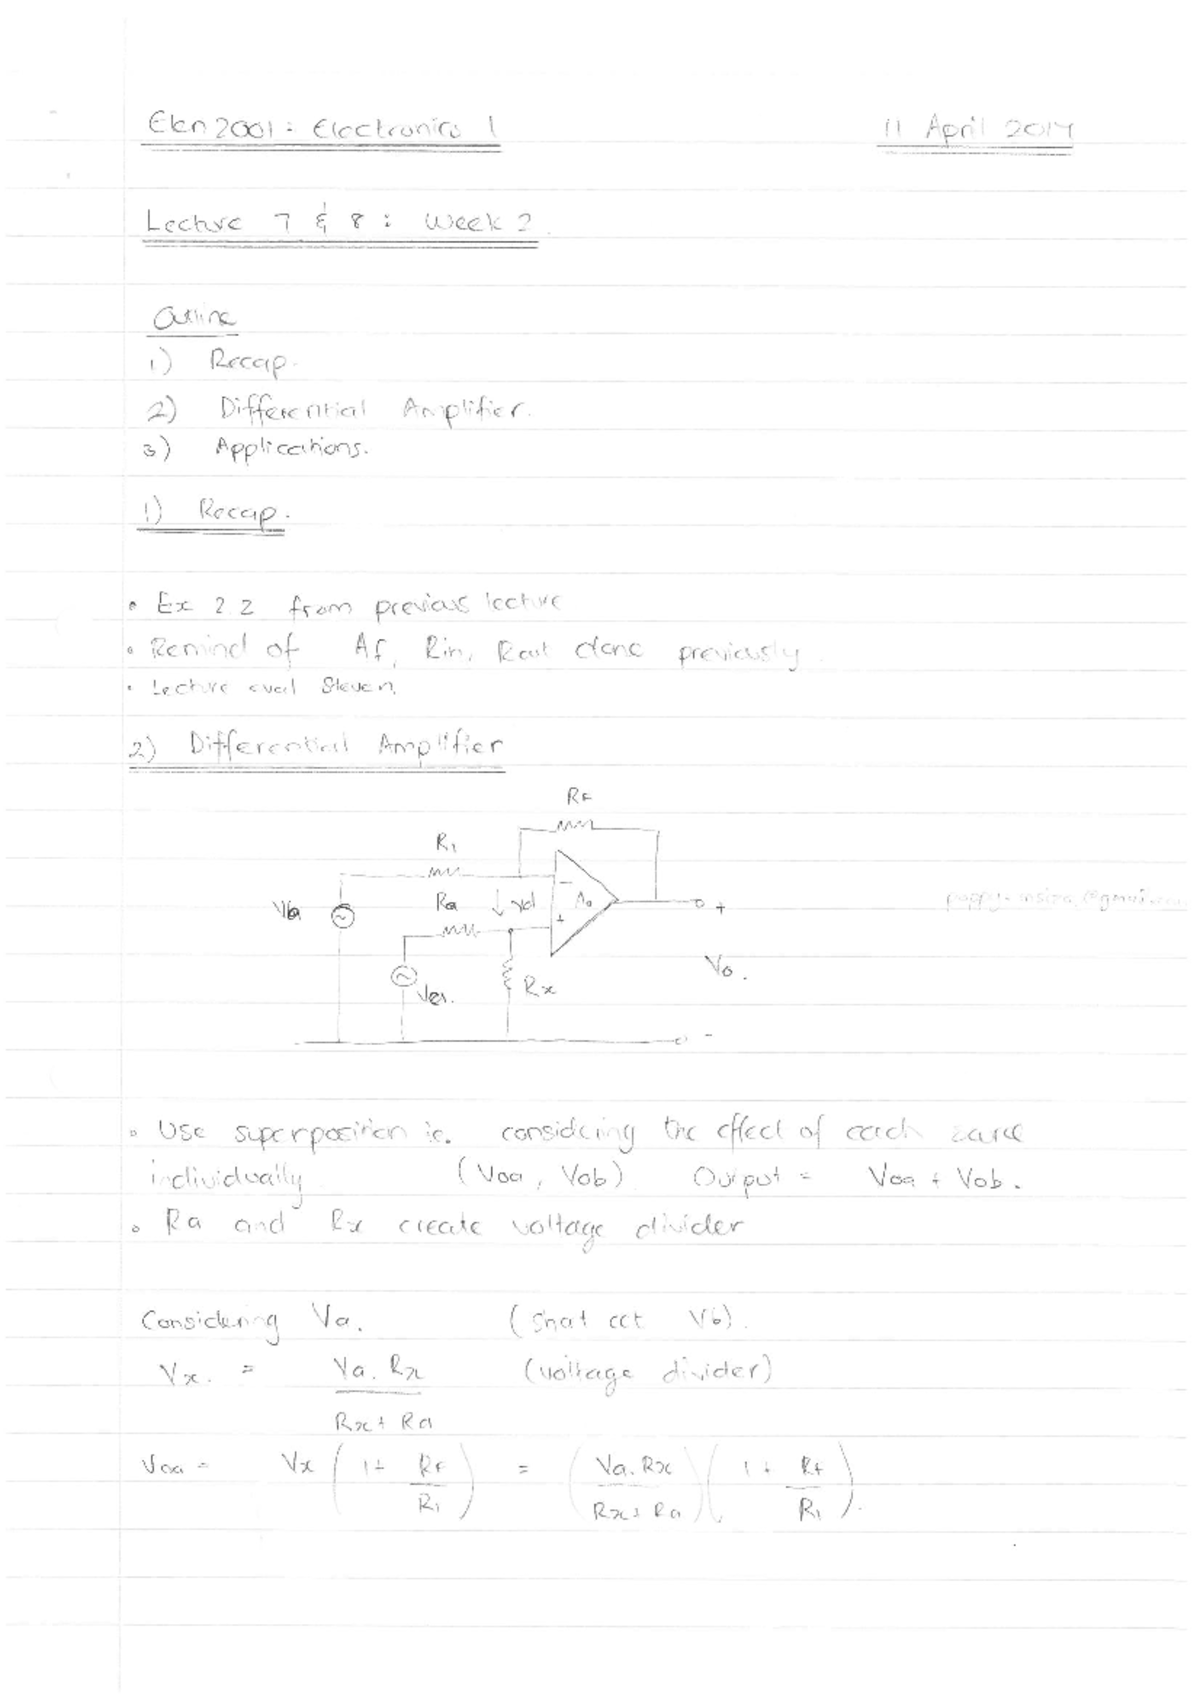 Elen 2001: Electronics 1 11 April 2014
Lecture 7 & 8: Week 2.
Outline
1) Recap.
2) Differential Amplifier.
3) Applications.
1) Recap.
• Ex 2.2 from previous lecture
• Remind of Af, Rin, Rout done previously.
• Lecture eval Steven.
2) Differential Amplifier
RF
R1
Vb
Ra
↓ Vd
−
A0
+
+
Va
Rx
Vo.
−
• Use superposition ie. considering the effect of each source
individually (Voa, Vob) Output = Voa + Vob.
• Ra and Rx create voltage divider
Considering Va. (Short cct Vb).
Vx. = Va. Rx / Rx + Ra (voltage divider)
Voa = Vx (1 + RF / R1) = (Va. Rx / Rx + Ra) (1 + Rf / R1).